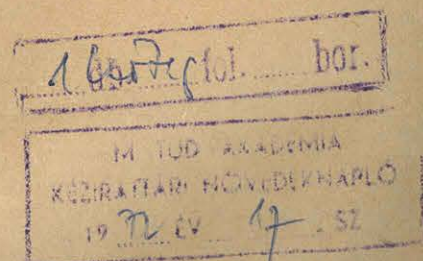 1 boríték fol. bor.
M. TUD. AKADÉMIA
KÉZIRATTÁRI NÖVEDÉKNAPLÓ
19 72 ÉV 17 . SZ